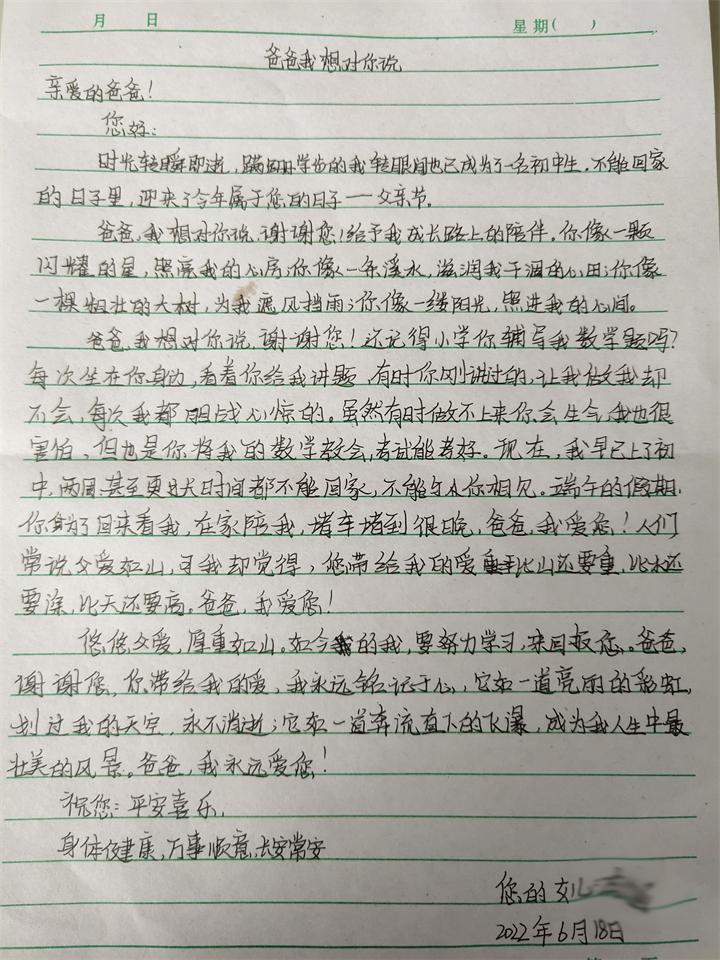 月 日 星期( )
爸爸我想对你说
亲爱的爸爸!
您好:
时光转瞬即逝,蹒跚学步的我转眼间也已成为了一名初中生。不能回家
的日子里,迎来了今年属于您的日子——父亲节。
爸爸,我想对你说,谢谢您!给予我成长路上的陪伴。你像一颗
闪耀的星,照亮我的心房;你像一条溪水,滋润我干涸的心田;你像
一棵粗壮的大树,为我遮风挡雨;你像一缕阳光,照进我的心间。
爸爸,我想对你说,谢谢您!还记得小学你辅导我数学题吗?
每次坐在你身边,看着你给我讲题,有时你刚讲过的,让我做我却
不会,每次我都胆战心惊的。虽然有时做不上来你会生气,我也很
害怕,但也是你将我的数学教会,考试能考好。现在,我早已上了初
中,两周甚至更长时间都不能回家,不能与你相见。端午的假期,
你为了回来看我,在家陪我,堵车堵到很晚,爸爸,我爱您!人们
常说父爱如山,可我却觉得,您带给我的爱比山还要重,比水还
要深,比天还要高。爸爸,我爱您!
悠悠父爱,厚重如山。如今的我,要努力学习,来回报您。爸爸,
谢谢您,你带给我的爱,我永远铭记于心,它如一道亮丽的彩虹,
划过我的天空,永不消逝;它如一道奔流直下的飞瀑,成为我人生中最
壮美的风景。爸爸,我永远爱您!
祝您:平安喜乐,
身体健康,万事顺意,长安常安
您的女儿
2022年6月18日